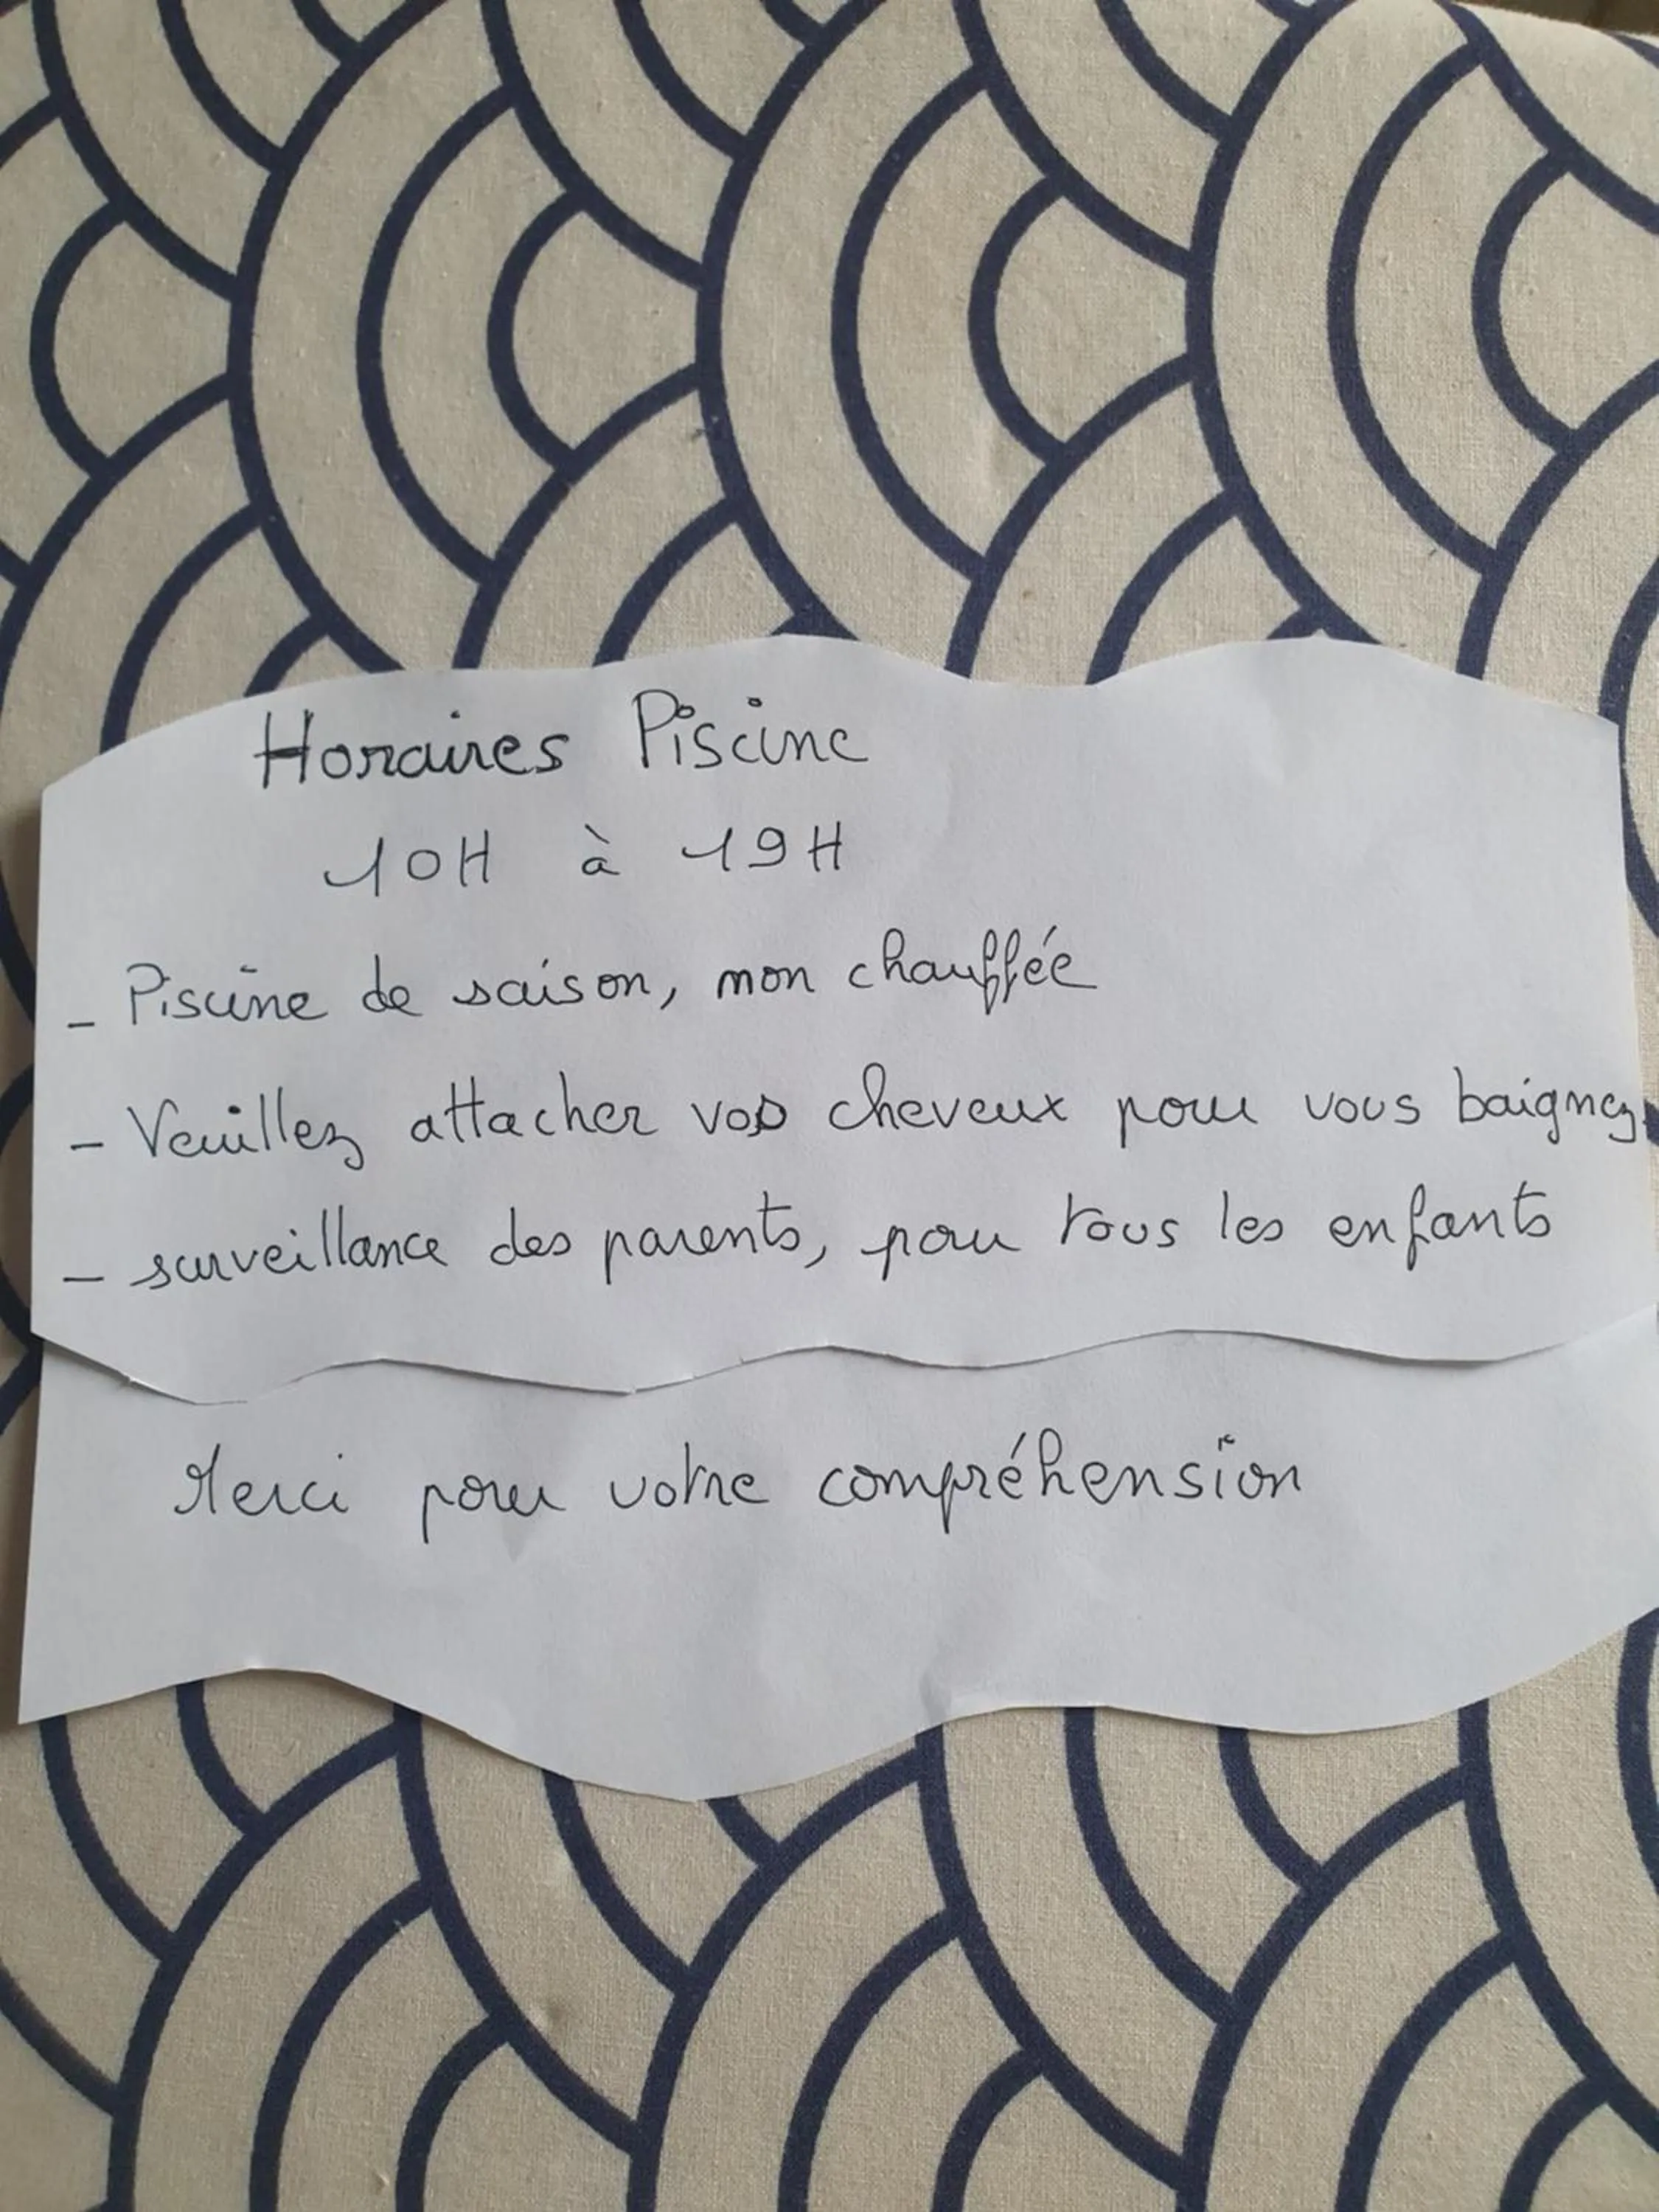 Horaires Piscine
10H à 19H
- Piscine de saison, non chauffée
- Veuillez attacher vos cheveux pour vous baignez
- surveillance des parents, pour tous les enfants
Merci pour votre compréhension